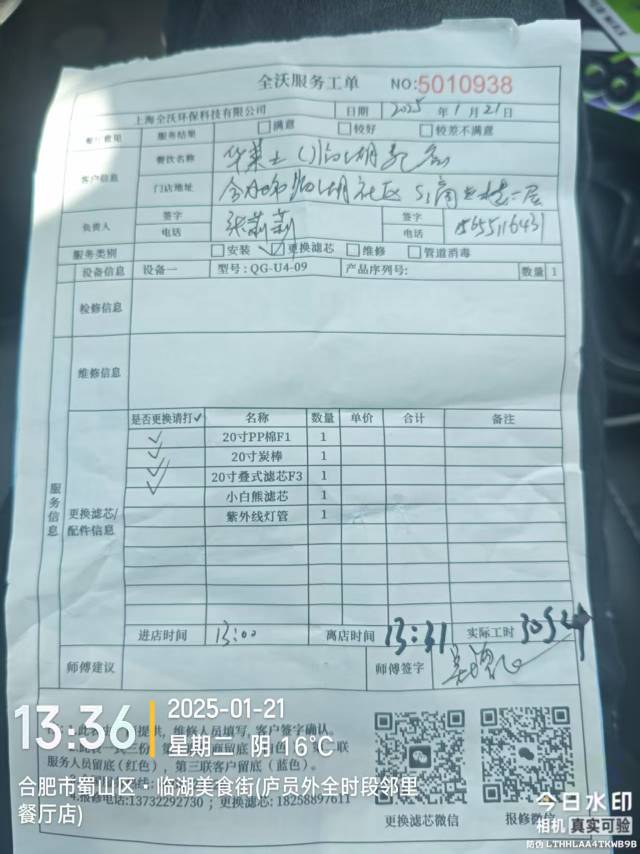 全沃服务工单 NO:5010938
上海全沃环保科技有限公司 日期 2025年1月21日
服务结果 满意 较好 较差不满意
客户信息 餐饮名称 华莱士(临湖
门店地址 临湖社区 S1商业楼一层
负责人 签字 电话 张莉莉 签字 电话 15655116431
服务类别 安装 ✓更换滤芯 维修 管道消毒
设备信息 设备一 型号: QG-U4-09 产品序列号: 数量 1
检修信息
维修信息
服务信息
更换滤芯/配件信息
是否更换请打✓ 名称 数量 单价 合计 备注
✓ 20寸PP棉F1 1
✓ 20寸炭棒 1
✓ 20寸叠式滤芯F3 1
✓ 小白熊滤芯 1
紫外线灯管 1
进店时间 13:00 离店时间 13:31 实际工时
师傅建议 师傅签字
提供,维修人员填写,客户签字确认。
联
服务人员留底(红色),第三联客户留底(蓝色)。
报修电话:13732292730; 更换滤芯: 18258897611
更换滤芯微信 报修微信
13:36 2025-01-21
星期二 阴 16℃
合肥市蜀山区·临湖美食街(庐员外全时段邻里餐厅店)
今日水印
相机 真实可验
防伪 LTHHLAA4TKWB9B